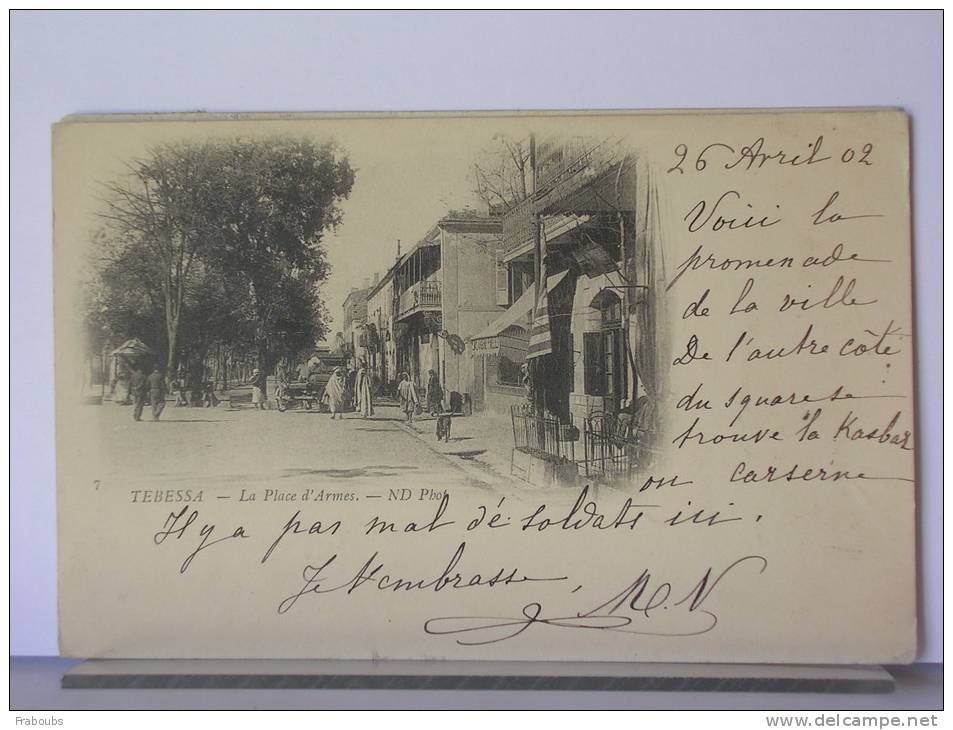 26 Avril 02
Voici la
promenade
de la ville
De l'autre côté
du square se
trouve la Kasbaz
ou carserne
7
TEBESSA — La Place d'Armes. — ND Phot
Il y a pas mal de soldats ici.
Je t'embrasse,
M. N
Fraboubs
www.delcampe.net